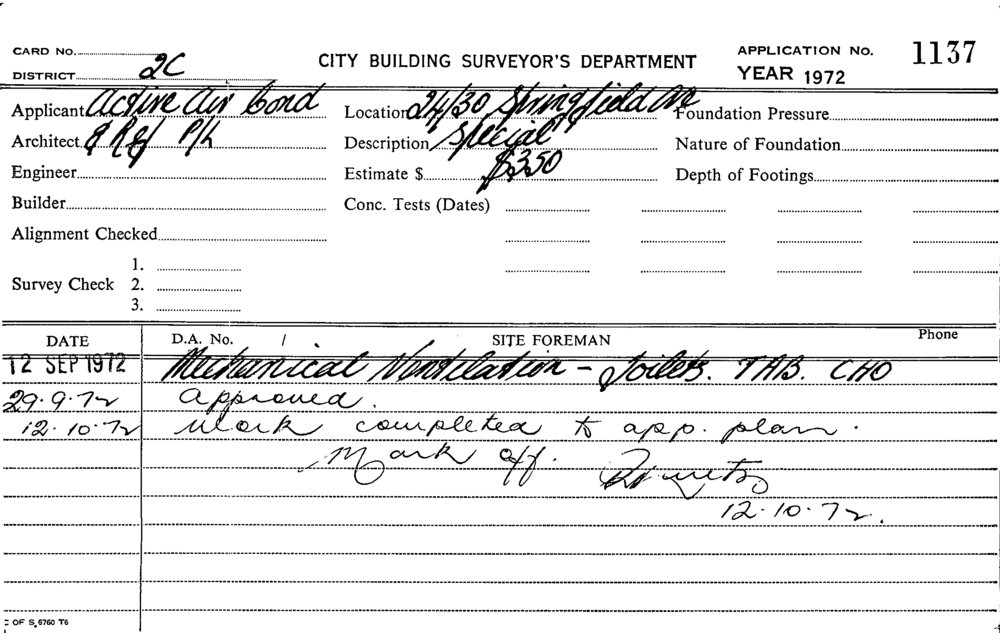 CARD No.
DISTRICT 2C
CITY BUILDING SURVEYOR'S DEPARTMENT
APPLICATION No. 1137
YEAR 1972
Applicant Active Air Cond
Location 24/30 Springfield Av
Foundation Pressure
Architect & Ref P/L
Description Special
Nature of Foundation
Engineer
Estimate $ $350
Depth of Footings
Builder
Conc. Tests (Dates)
Alignment Checked
Survey Check 1.
2.
3.
DATE D.A. No. / SITE FOREMAN Phone
12 SEP 1972 Mechanical Ventilation - Toilets. TAB. CHO
29.9.72 approved.
12.10.72 Work completed to app. plan.
Mark off.
12.10.72.
C OF S. 6760 T6